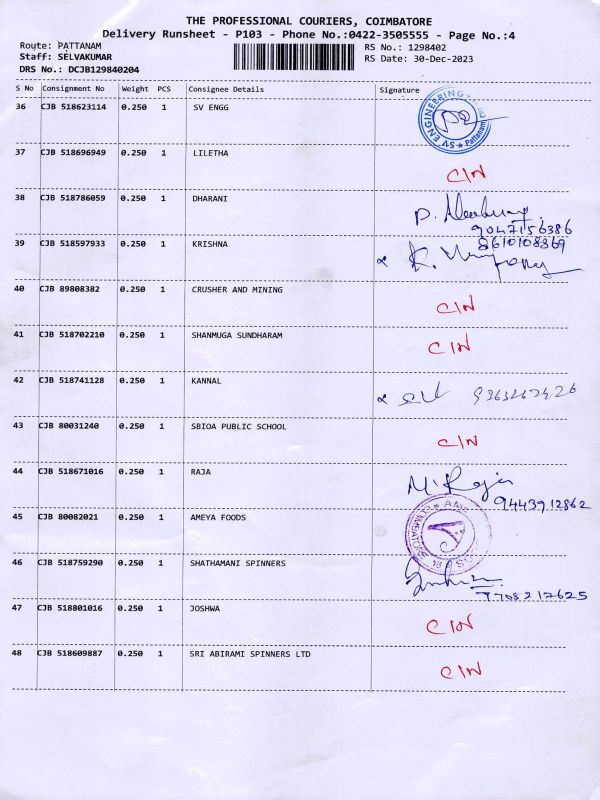 THE PROFESSIONAL COURIERS, COIMBATORE
Delivery Runsheet - P103 - Phone No.:0422-3505555 - Page No.:4
Route: PATTANAM RS No.: 1298402
Staff: SELVAKUMAR RS Date: 30-Dec-2023
DRS No.: DCJB129840204
S No Consignment No Weight PCS Consignee Details Signature
36 CJB 518623114 0.250 1 SV ENGG SV ENGINEERING Pattanam
37 CJB 518696949 0.250 1 LILETHA C/N
38 CJB 518786059 0.250 1 DHARANI P.
9047156386
39 CJB 518597933 0.250 1 KRISHNA 8610108369
K.
40 CJB 89808382 0.250 1 CRUSHER AND MINING C/N
41 CJB 518702210 0.250 1 SHANMUGA SUNDHARAM C/N
42 CJB 518741128 0.250 1 KANNAL
43 CJB 80031240 0.250 1 SBIOA PUBLIC SCHOOL C/N
44 CJB 518671016 0.250 1 RAJA M. Raja
9443912862
45 CJB 80082021 0.250 1 AMEYA FOODS
46 CJB 518759290 0.250 1 SHATHAMANI SPINNERS
7708217625
47 CJB 518801016 0.250 1 JOSHWA C/N
48 CJB 518609887 0.250 1 SRI ABIRAMI SPINNERS LTD C/N